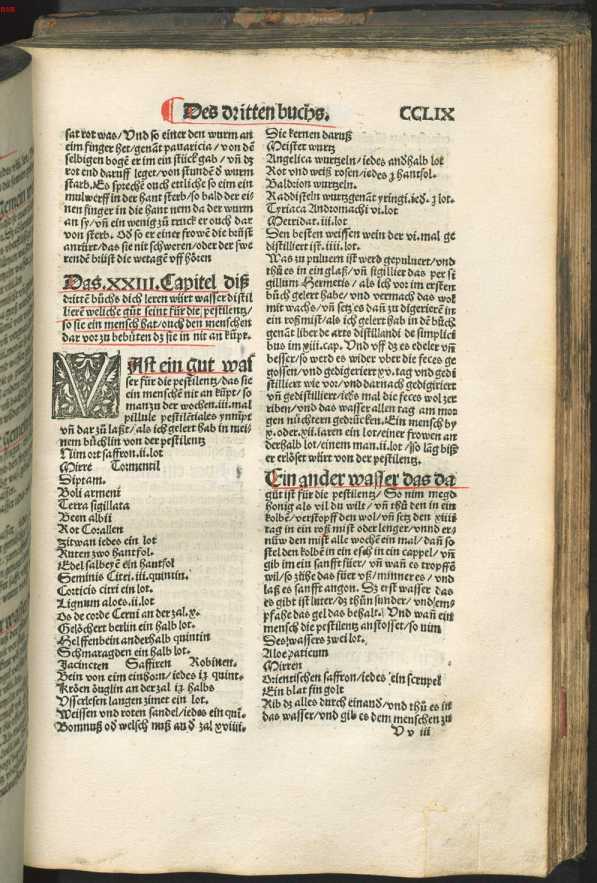 Des dritten buchs. CCLIX
sat rot was/Vnd so einer den wurm an
eim finger het/genāt pauaricia/von dē
selbigen bogē er im ein stück gab/vñ dz
rot end daruff leget/von stundē ď wurm
starb. Es sprechē ouch ettliche so eim ein
mulwerff in der hant sterb/so bald der ei
nen finger in die hant nem da der wurm
an sy/vñ ein wenig zů truck er ouch dar
von sterb. Od so er einer frowē die brüst
anrürt/das sie nit schweren/oder der swe
rende brüst die wetagē vff hören
Das .XXIII. Capitel diß
drittē bůchs dich leren würt wasser distil
lierē weliche gůt seint für die pestilentz/
so sie ein mensch hat/ouch den menschen
dar vor zu behütē dz sie in nit an kūpt.
VAst ein gut was
ser für die pestilentz/das sie
ein menschē nit an kūpt/so
man zu der wochen .iii.mal
pillule pestilētiales ynnüpt
vñ dar zů laßt/als ich gelert hab in mei
nem büchlin von der pestilentz
Nim ort saffron .ii.lot
Mirre Tormentil
Diptam.
Boli armeni
Terra sigillata
Been albii
Rot Corallen
Zitwan iedes ein lot
Ruten zwo hantfol.
Edel salbeyē ein hantfol
Seminis Citri .iii.quintin.
Corticis citri ein lot.
Lignum aloes .ii.lot
Os de corde Cerui an der zal .x.
Gelöchert berlin ein halb lot.
Helffenbein anderhalb quintin
Schmaragden ein halb lot.
Jacincten Saffiren Robinen.
Bein von eim einhorn/iedes iʒ quint.
Kröen öuglin an der zal iʒ halbs
Vsserlesen langen zimet ein lot.
Weissen vnd roten sandel/iedes ein quī.
Bomnuß od welsch nuß an ď zal xviiii.
Die kernen daruß
Meister wurtz
Angelica wurtzeln/iedes andhalb lot
Rot vnd weiß rosen/iedes ʒ hantfol.
Baldrion wurtzeln.
Raddisteln wurtz genāt yringi.ied. ʒ lot.
Tyriaca Andromachi vi.lot
Metridat .iii.lot
Den besten weissen wein der vi.mal ge
distilliert ist .iiii.lot.
Was zu puluern ist werd gepuluert/vnd
thů es in ein glaß/vñ sigillier das per si
gillum Hermetis/als ich vor im ersten
bůch gelert habe/vnd vermach das wol
mit wachs/vñ setz es dañ zu digerierē in
ein roßmist/als ich gelert hab in dē bůch
genāt liber de arte distillandi de simplici
bus im xiii.cap. Vnd vff dz es edeler vñ
besser/so werd es wider vber die feces ge
gossen/vnd gedigeriert xv.tag vnd gedi
stilliert wie vor/vnd darnach gedigiriert
vñ gedistilliert/iezs mal die feces wol zer
riben/vnd das wasser allen tag am mor
gen nüchtern gedrücken. Ein mensch by
x.oder .xii.iaren ein lot/einer frowen an
derhalb lot/einem man .ii.lot/so lāg biß
er erlöset würt von der pestilentz.
Ein ander wasser das da
gůt ist für die pestilentz/So nim megd
honig als vil du wilt/vñ thů den in ein
kolbē/verstopff den wol/vñ setz den xiiii
tag in ein roß mist oder lenger/vnnd er-
nüw den mist alle wochē ein mal/dañ so
stel den kolbē in ein esch in ein cappel/vñ
gib im ein sanfft füer/vñ wañ es tropffē
wil/so zühe das füer vß/minner es/vnd
laß es sanfft angon. Dz erst wasser das
es gibt ist luter/dz thůn sunder/vnd em-
pfahe das gel das behalt. Vnd wañ ein
mensch die pestilentz anstosset/so nim
Des wassers zwei lot.
Aloe paticum
Mirren
Orientischen saffron/iedes ein scrupel
Ein blat fin golt
Rib dz alles durch einand/vnd thů es in
das wasser/vnd gib es dem menschen zu
V v iii